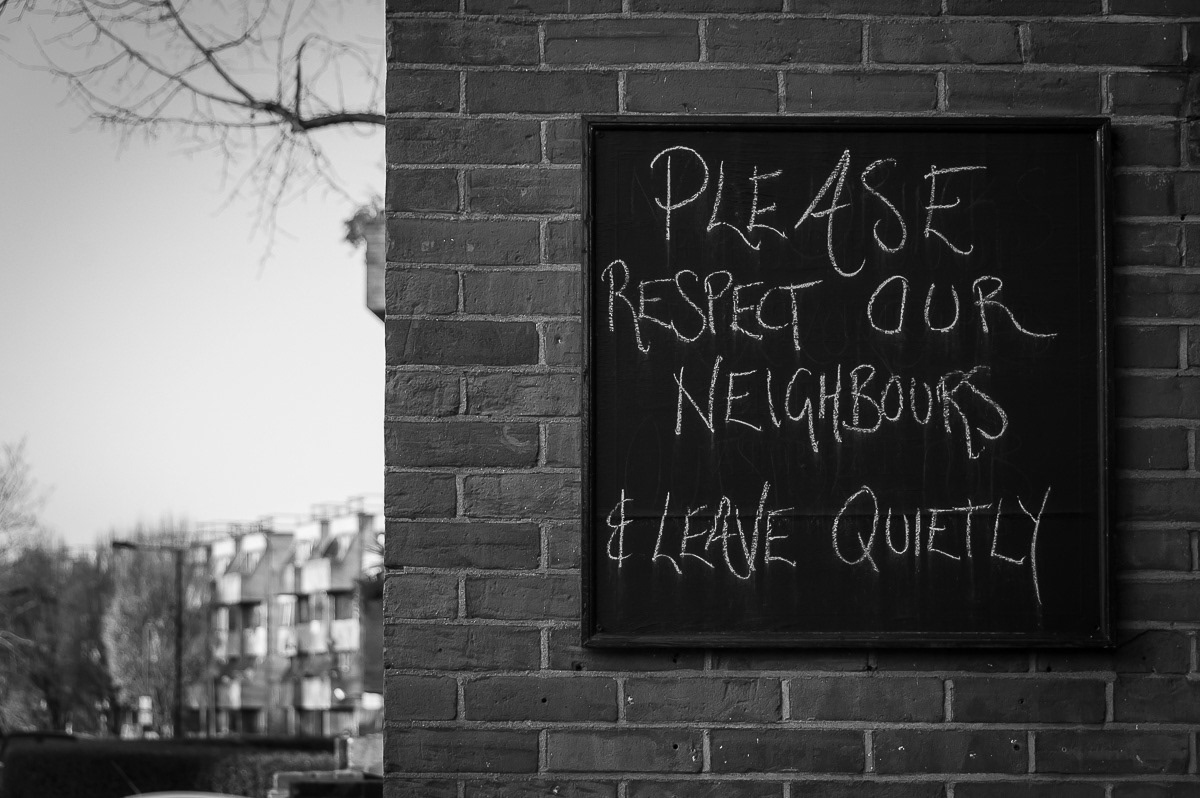 PLEASE
RESPECT OUR
NEIGHBOURS
& LEAVE QUIETLY